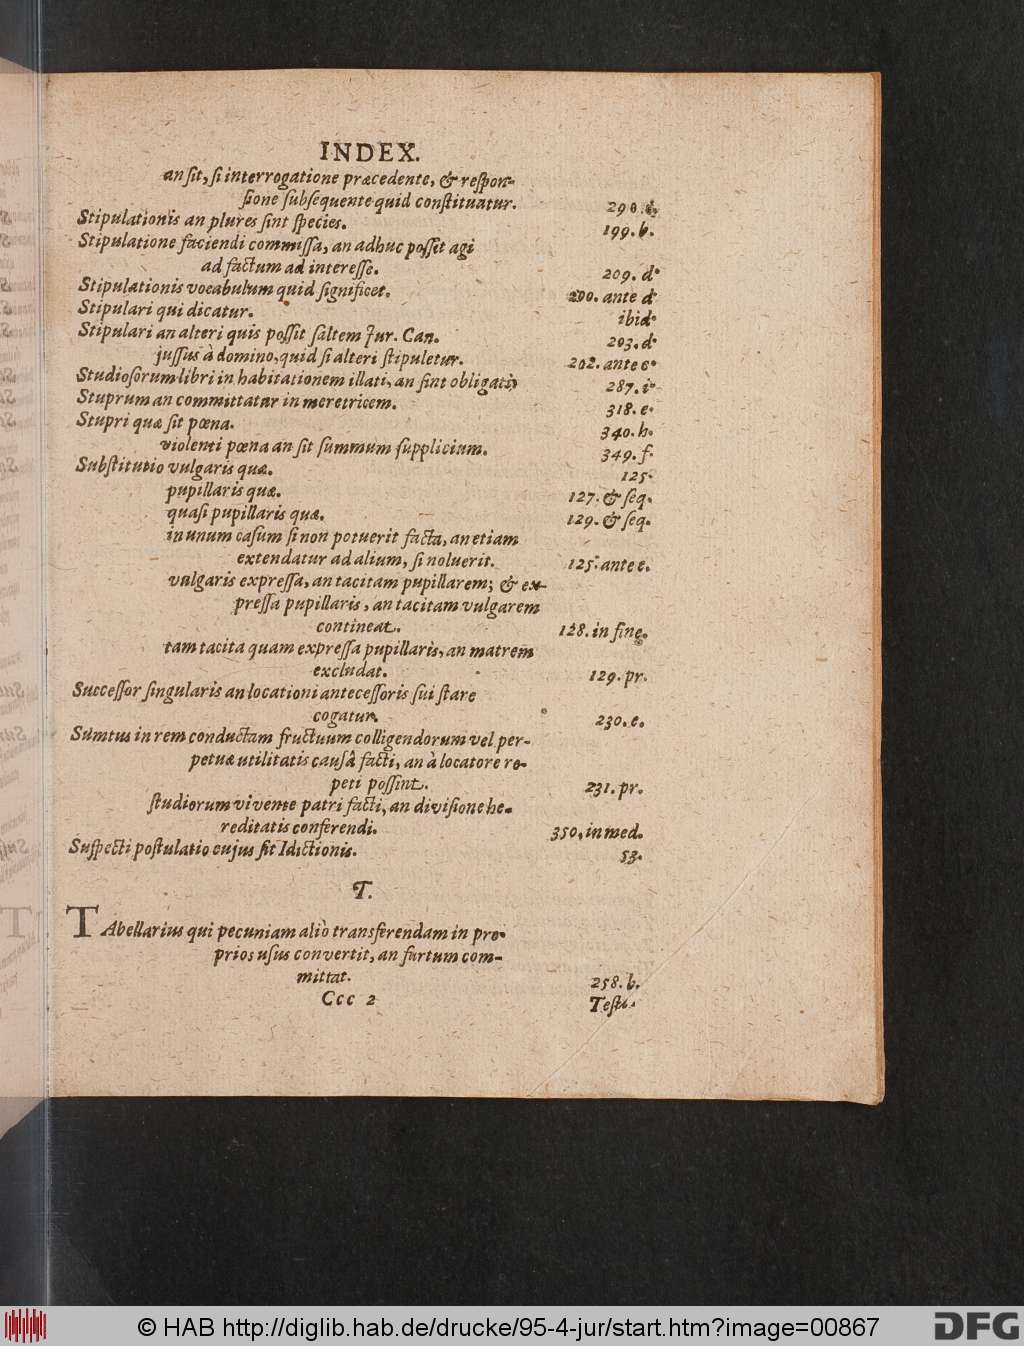 INDEX.
an sit, si interrogatione præcedente, & respon-
sione subsequente quid constituatur. 290. d.
Stipulationis an plures sint species. 199. b.
Stipulatione faciendi commissa, an adhuc possit agi
ad factum ad interesse. 209. d.
Stipulationis vocabulum quid significet. 200. ante d.
Stipulari qui dicatur. ibid.
Stipulari an alteri quis possit saltem Jur. Can. 203. d.
jussus à domino, quid si alteri stipuletur. 202. ante c.
Studiosorum libri in habitationem illati, an sint obligati, 287. i.
Stuprum an committatur in meretricem. 318. e.
Stupri quæ sit pœna. 340. h.
violenti pœna an sit summum supplicium. 349. f.
Substitutio vulgaris quæ. 125.
pupillaris quæ. 127. & seq.
quasi pupillaris quæ. 129. & seq.
in unum casum si non potuerit facta, an etiam
extendatur ad alium, si noluerit. 125. ante e.
vulgaris expressa, an tacitam pupillarem; & ex-
pressa pupillaris, an tacitam vulgarem
contineat. 128. in fine.
tam tacita quam expressa pupillaris, an matrem
excludat. 129. pr.
Successor singularis an locationi antecessoris sui stare
cogatur. 230. e.
Sumtus in rem conductam fructuum colligendorum vel per-
petuæ utilitatis causâ facti, an à locatore re-
peti possint. 231. pr.
studiorum vivente patri facti, an divisione he-
reditatis conferendi. 350, in med.
Suspecti postulatio cujus sit Idictionis. 53.
T.
TAbellarius qui pecuniam aliò transferendam in pro-
prios usus convertit, an furtum com-
mittat. 258. b.
Ccc 2 Testi-
© HAB http://diglib.hab.de/drucke/95-4-jur/start.htm?image=00867
DFG